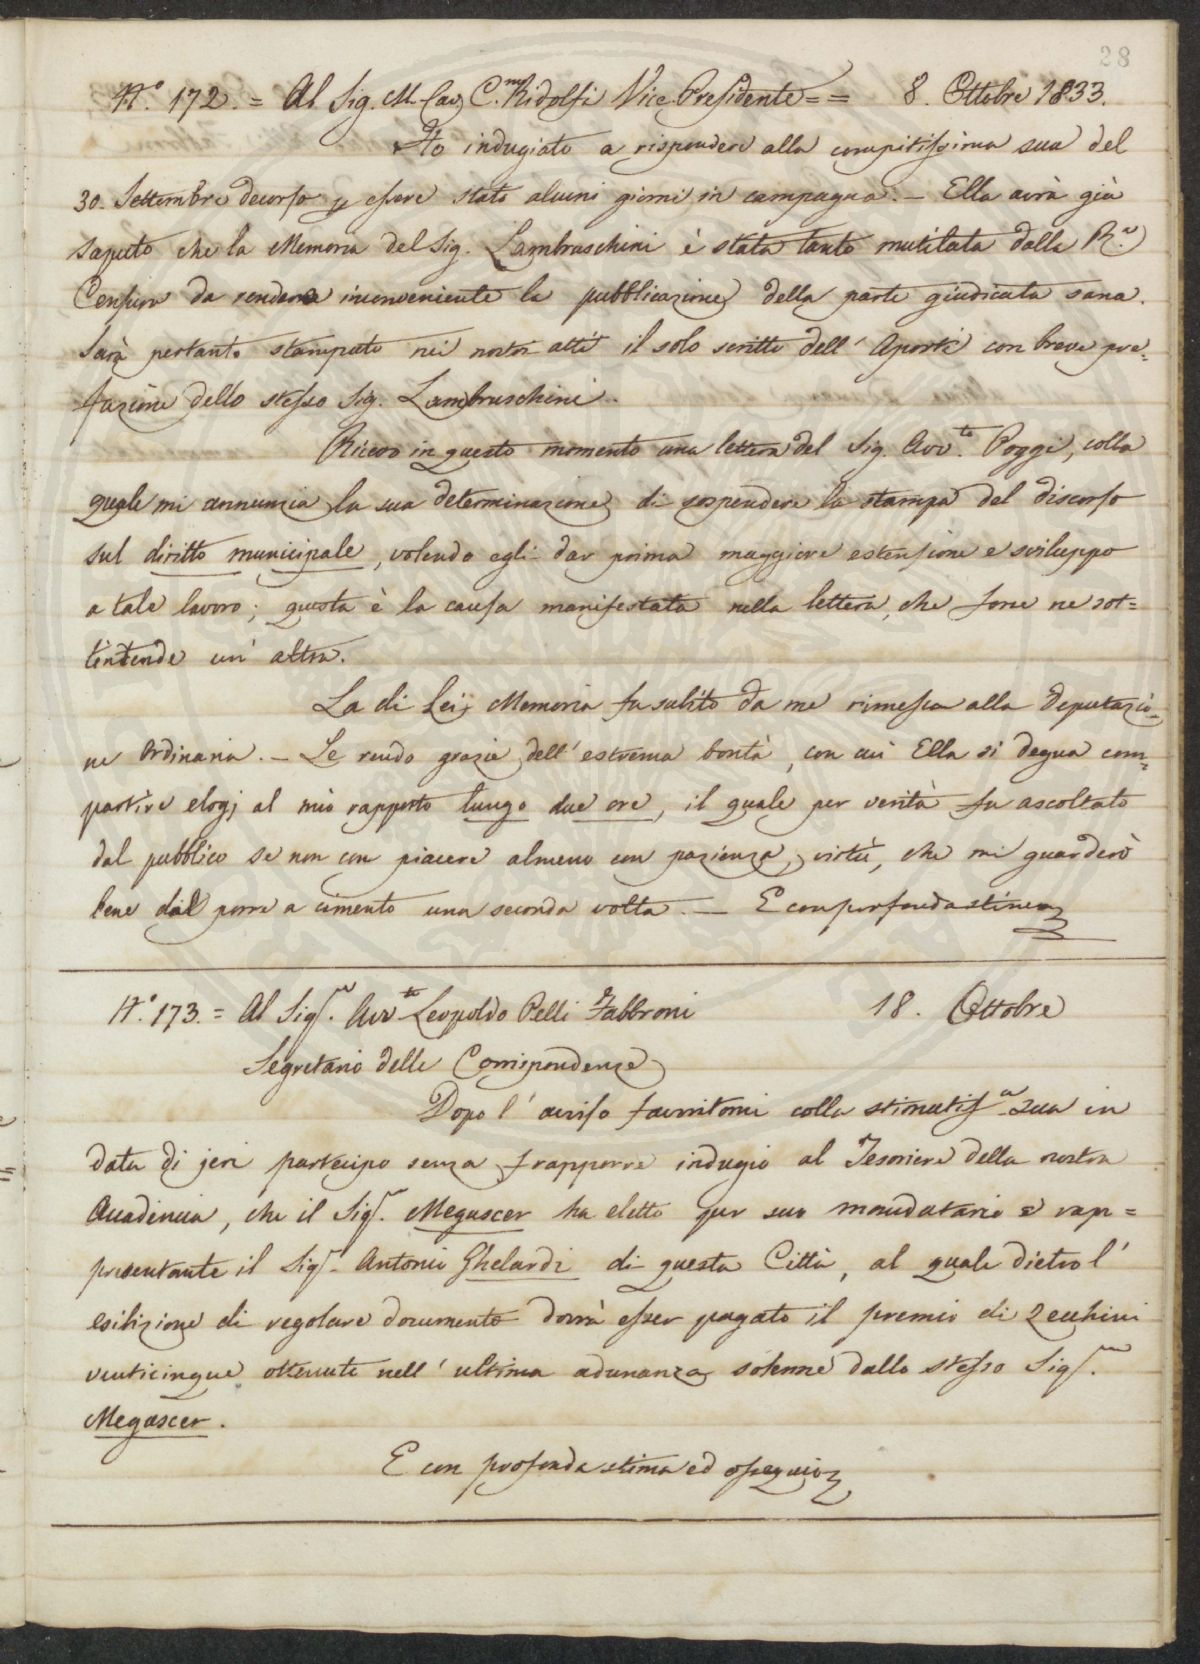 28
N.° 172. = Al Sig. M. Cav. C.mo Ridolfi Vice Presidente = = 8. Ottobre 1833.
Ho indugiato a rispondere alla compitissima sua del
30. Settembre decorso p essere stato alcuni giorni in campagna. — Ella avrà già
saputo che la Memoria del Sig. Lambruschini è stata tanto mutilata dalla R.a
Censura da rendere inconveniente la pubblicazione della parte giudicata sana.
Sarà pertanto stampato nei nostri atti il solo scritto dell' Aporti con breve pre=
fazione dello stesso Sig. Lambruschini.
Ricevo in questo momento una lettera del Sig. Avv.to Poggi, colla
quale mi annunzia la sua determinazione di sospendere la stampa del discorso
sul diritto municipale, volendo egli dar prima maggiore estensione e sviluppo
a tale lavoro; questa è la causa manifestata nella lettera, che forse ne sot=
tintende un' altra.
La di Lei Memoria fu subito da me rimessa alla Deputazio=
ne Ordinaria. — Le rendo grazie dell' estrema bontà, con cui Ella si degna com=
partire elogj al mio rapporto lungo due ore, il quale per verità fu ascoltato
dal pubblico se non con piacere almeno con pazienza, virtù, che mi guarderò
bene dal porre a cimento una seconda volta. — E con profonda stima
N.° 173. = Al Sigr. Avv.to Leopoldo Pelli Fabbroni 18. Ottobre
Segretario delle Corrispondenze
Dopo l' avviso fornitomi colla stimatiss.a Sua in
data di jeri partecipo senza frapporre indugio al Tesoriere della nostra
Accademia, che il Sigr. Megascer ha eletto per suo mandatario e rap=
presentante il Sigr. Antonio Ghelardi di questa Città, al quale dietro l'
esibizione di regolare documento dovrà esser pagato il premio di Zecchini
venticinque ottenuto nell' ultima adunanza solenne dallo stesso Sigr.
Megascer.
E con profonda stima ed ossequio